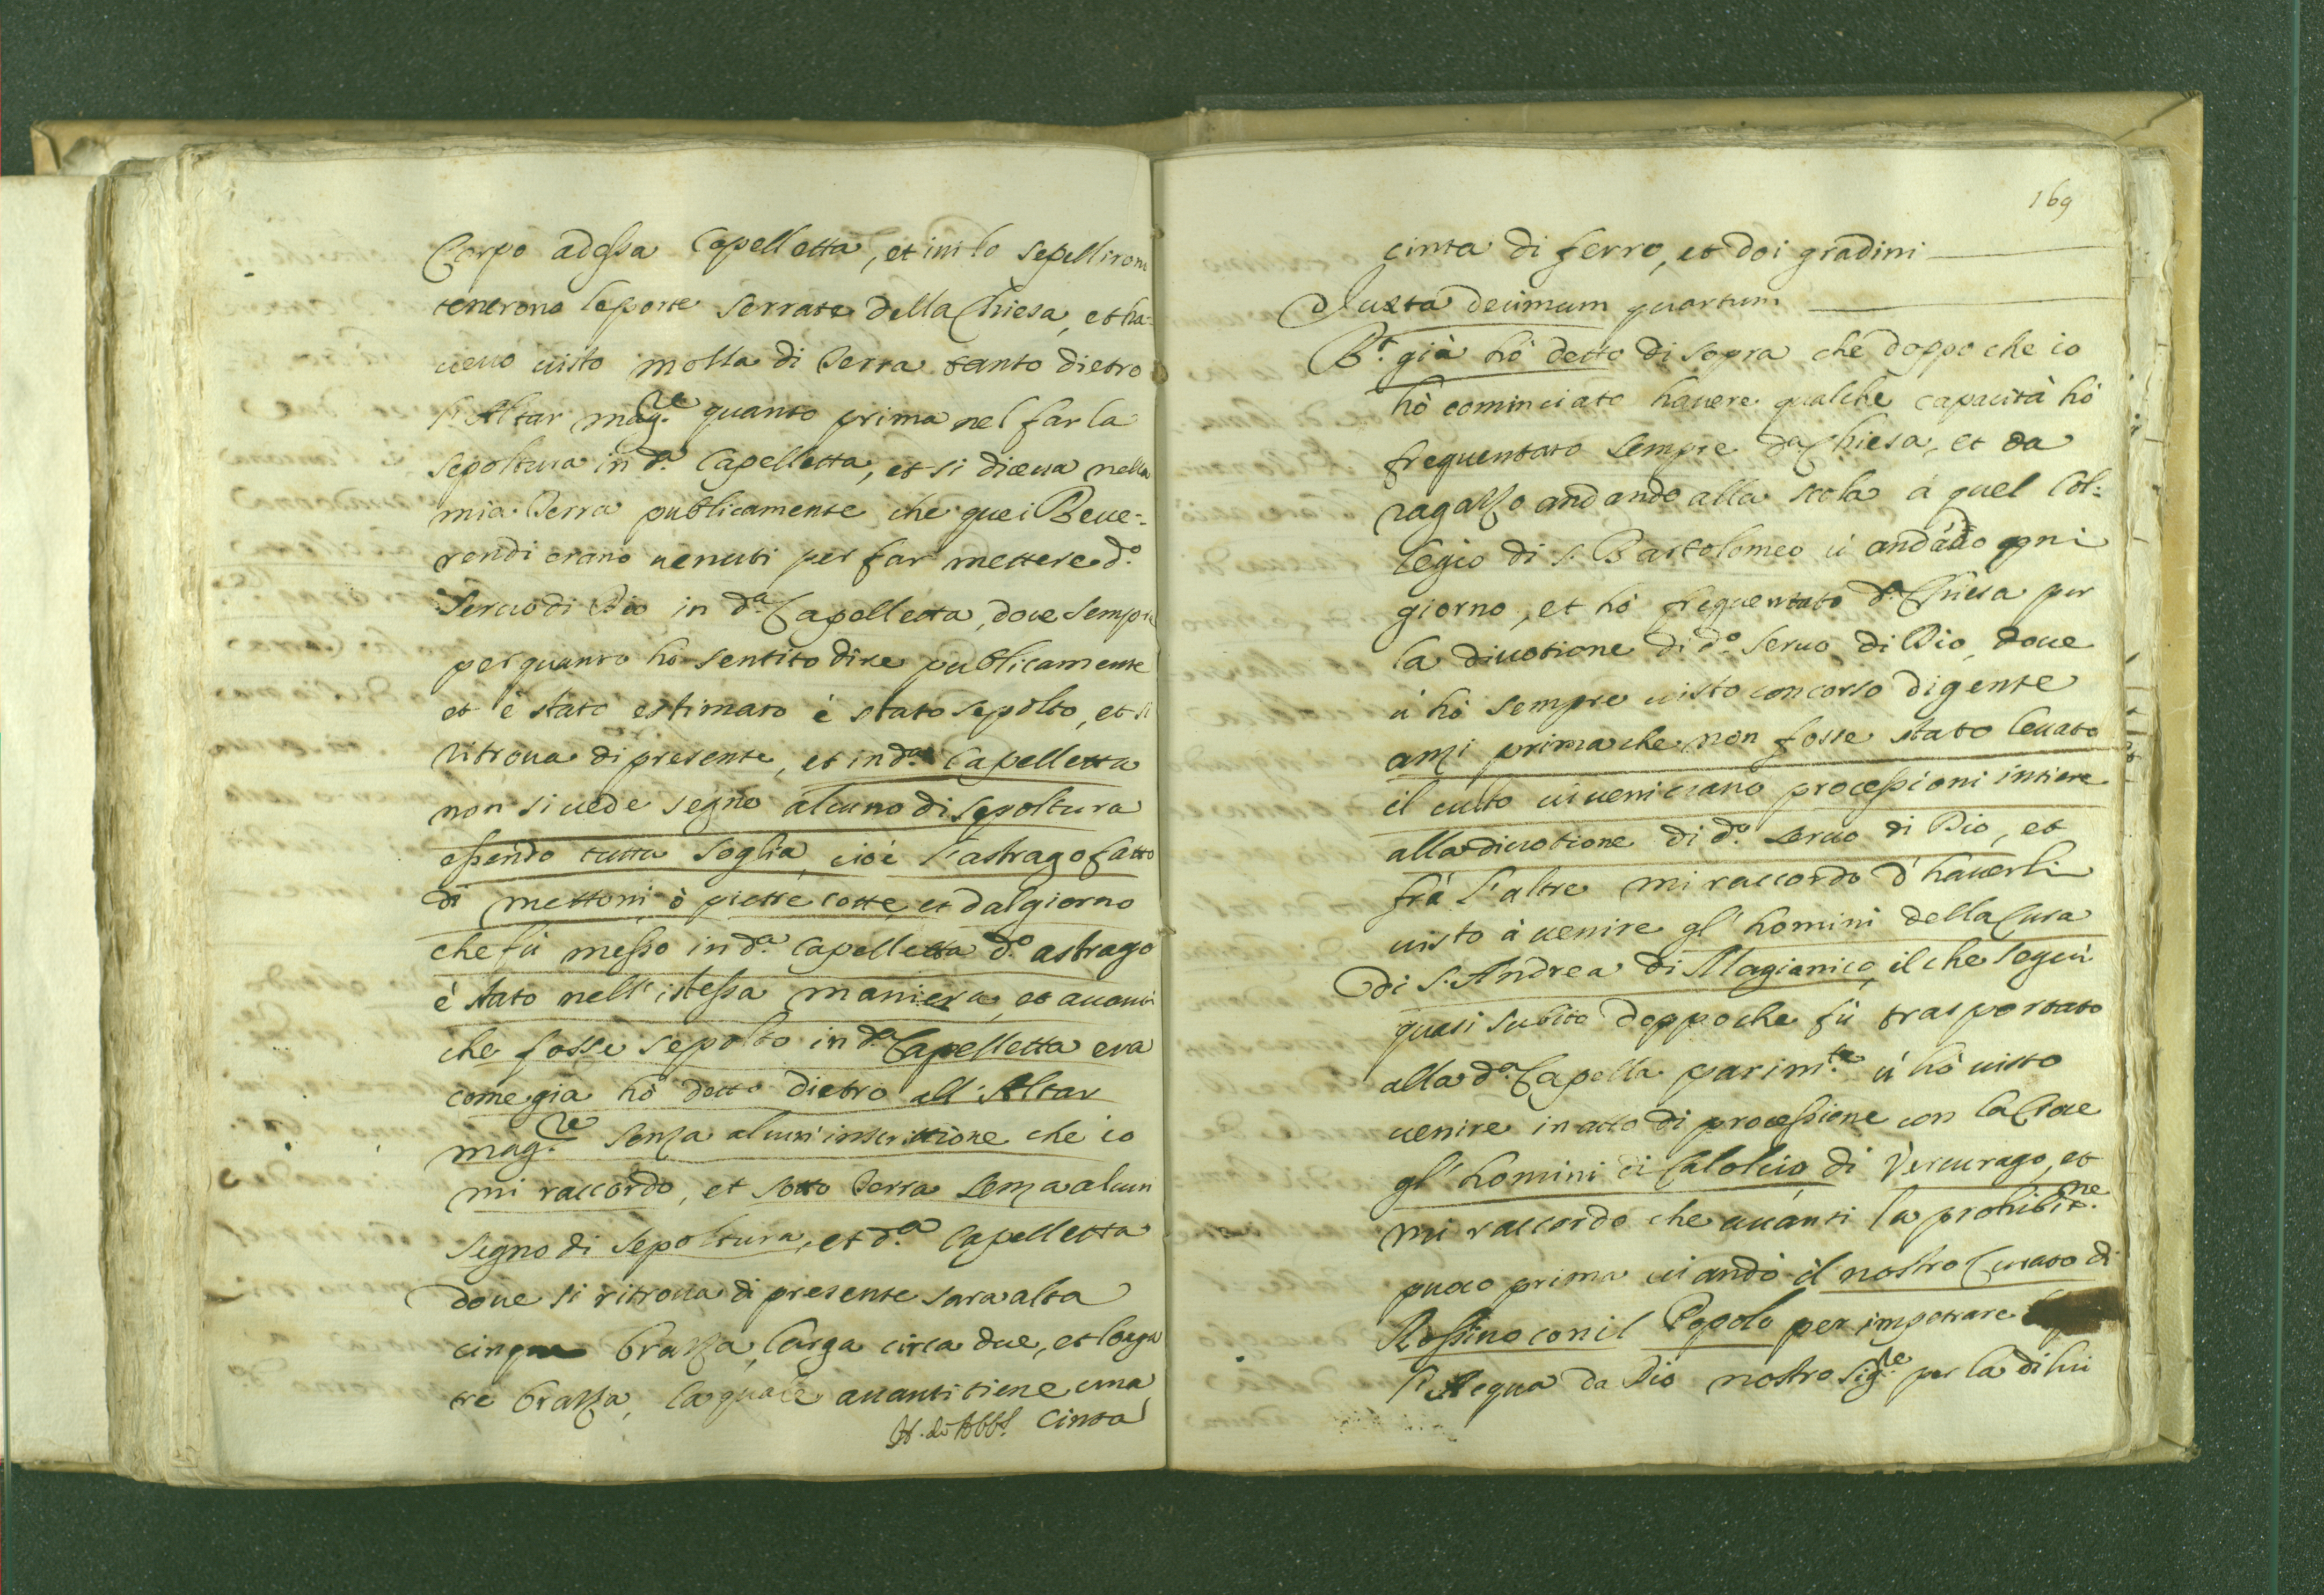 Corpo adessa Capelletta, et ini lo sepelliron
tenerono le porte serrate della Chiesa, et ha-
ueuo uisto molta di Terra tanto dietro
l'Altar mag.re quanto prima nel far la
sepoltura in d.a Capelletta, et si diceua nella
mia Terra publicamente che quei Reue-
rendi erano uenuti per far mettere d.o
Seruo di Dio in d.a Capelletta, doue sempre
per quanto hò sentito dire publicamente
et è stato estimato è stato sepolto, et si
ritroua di presente, et in d.a Capelletta
non si uede segno alcuno di sepoltura
essendo tutta soglia, cioè l'astrago fatto
di mettoni ò pietre cotte, et dal giorno
che fù messo in d.a Capelletta d.o astrago
è stato nell'istessa maniera, et auanti
che fosse sepolto in d.a Capelletta era
come già hò detto dietro all'Altar
mag.re senza alcun'inscrittione che io
mi raccordo, et sotto Terra senza alcun
segno di sepoltura, et d.a Capelletta
doue si ritroua di presente sara alta
cinque brazza, larga circa due, et longa
tre brazza, la quale auanti tiene una
cinta
169
cinta di ferro, et doi gradini
Iuxta decimum quartum
R.t già hò detto di sopra che doppo che io
hò cominciato hauere qualche capacità hò
frequentato sempre d.a Chiesa, et da
ragazzo andando alla scola à quel Col-
legio di S. Bartolomeo ui andauo ogni
giorno, et hò frequentato d.a Chiesa per
la diuotione di d.o Seruo di Dio, doue
ui hò sempre uisto concorso di gente
anzi prima che non fosse stato leuato
il culto ui ueniuano processioni intiere
alla diuotione di d.o Seruo di Dio, et
frà l'altre mi raccordo d'hauerli
uisto à uenire gl'homini della Cura
di S. Andrea di Magianico, il che seguì
quasi subito doppo che fù trasportato
alla d.a Capella parim.te ui hò uisto
uenire in atto di processione con la Croce
gl'homini di Calolcio di Vercurago, et
mi raccordo che auanti la prohibit.ne
puoco prima ui andò il nostro Curato di
Rossino con il Popolo per impetrare
l'Acqua da Dio nostro Sig.re per la di lui